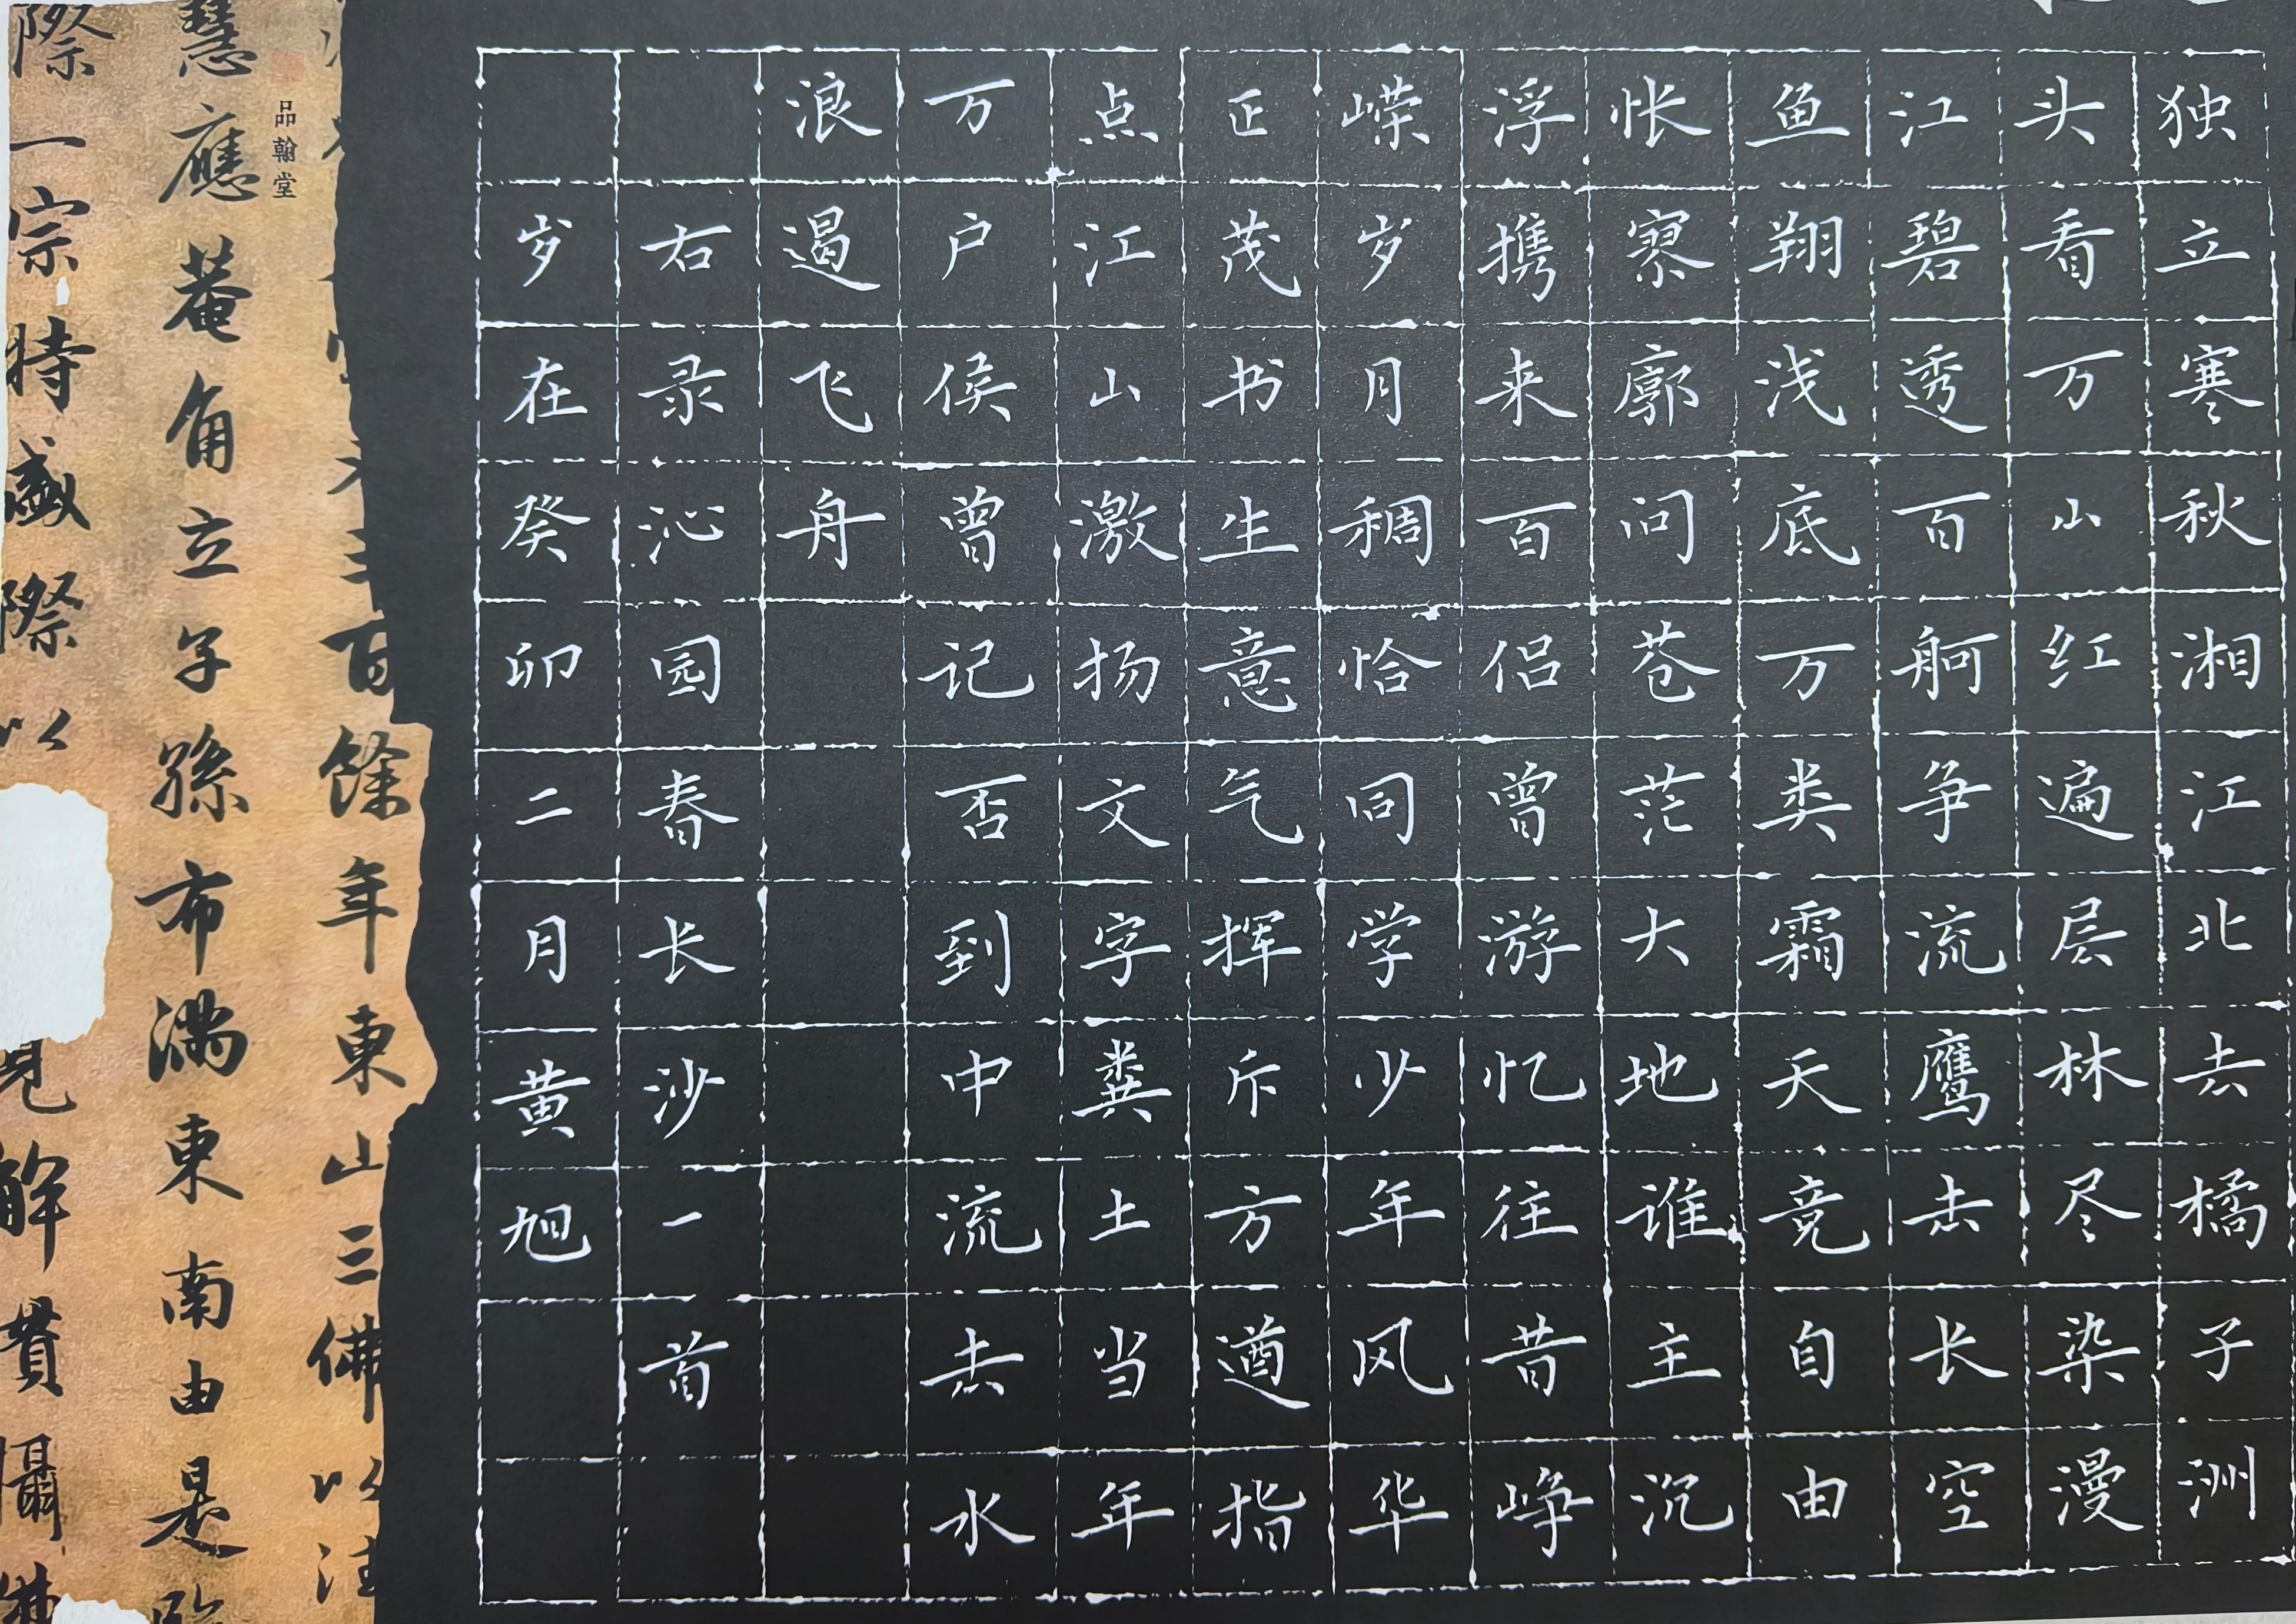 独立寒秋湘江北去橘子洲
头看万山红遍层林尽染漫
江碧透百舸争流鹰击长空
鱼翔浅底万类霜天竞自由
怅寥廓问苍茫大地谁主沉
浮携来百侣曾游忆往昔峥
嵘岁月稠恰同学少年风华
正茂书生意气挥斥方遒指
点江山激扬文字粪土当年
万户侯曾记否到中流击水
浪遏飞舟
右录沁园春长沙一首
岁在癸卯二月黄旭
百餘年東山三佛以法
品翰堂
慧應菴角立子孫布滿東南由是臨
際一宗特盛際以見解貫攝佛